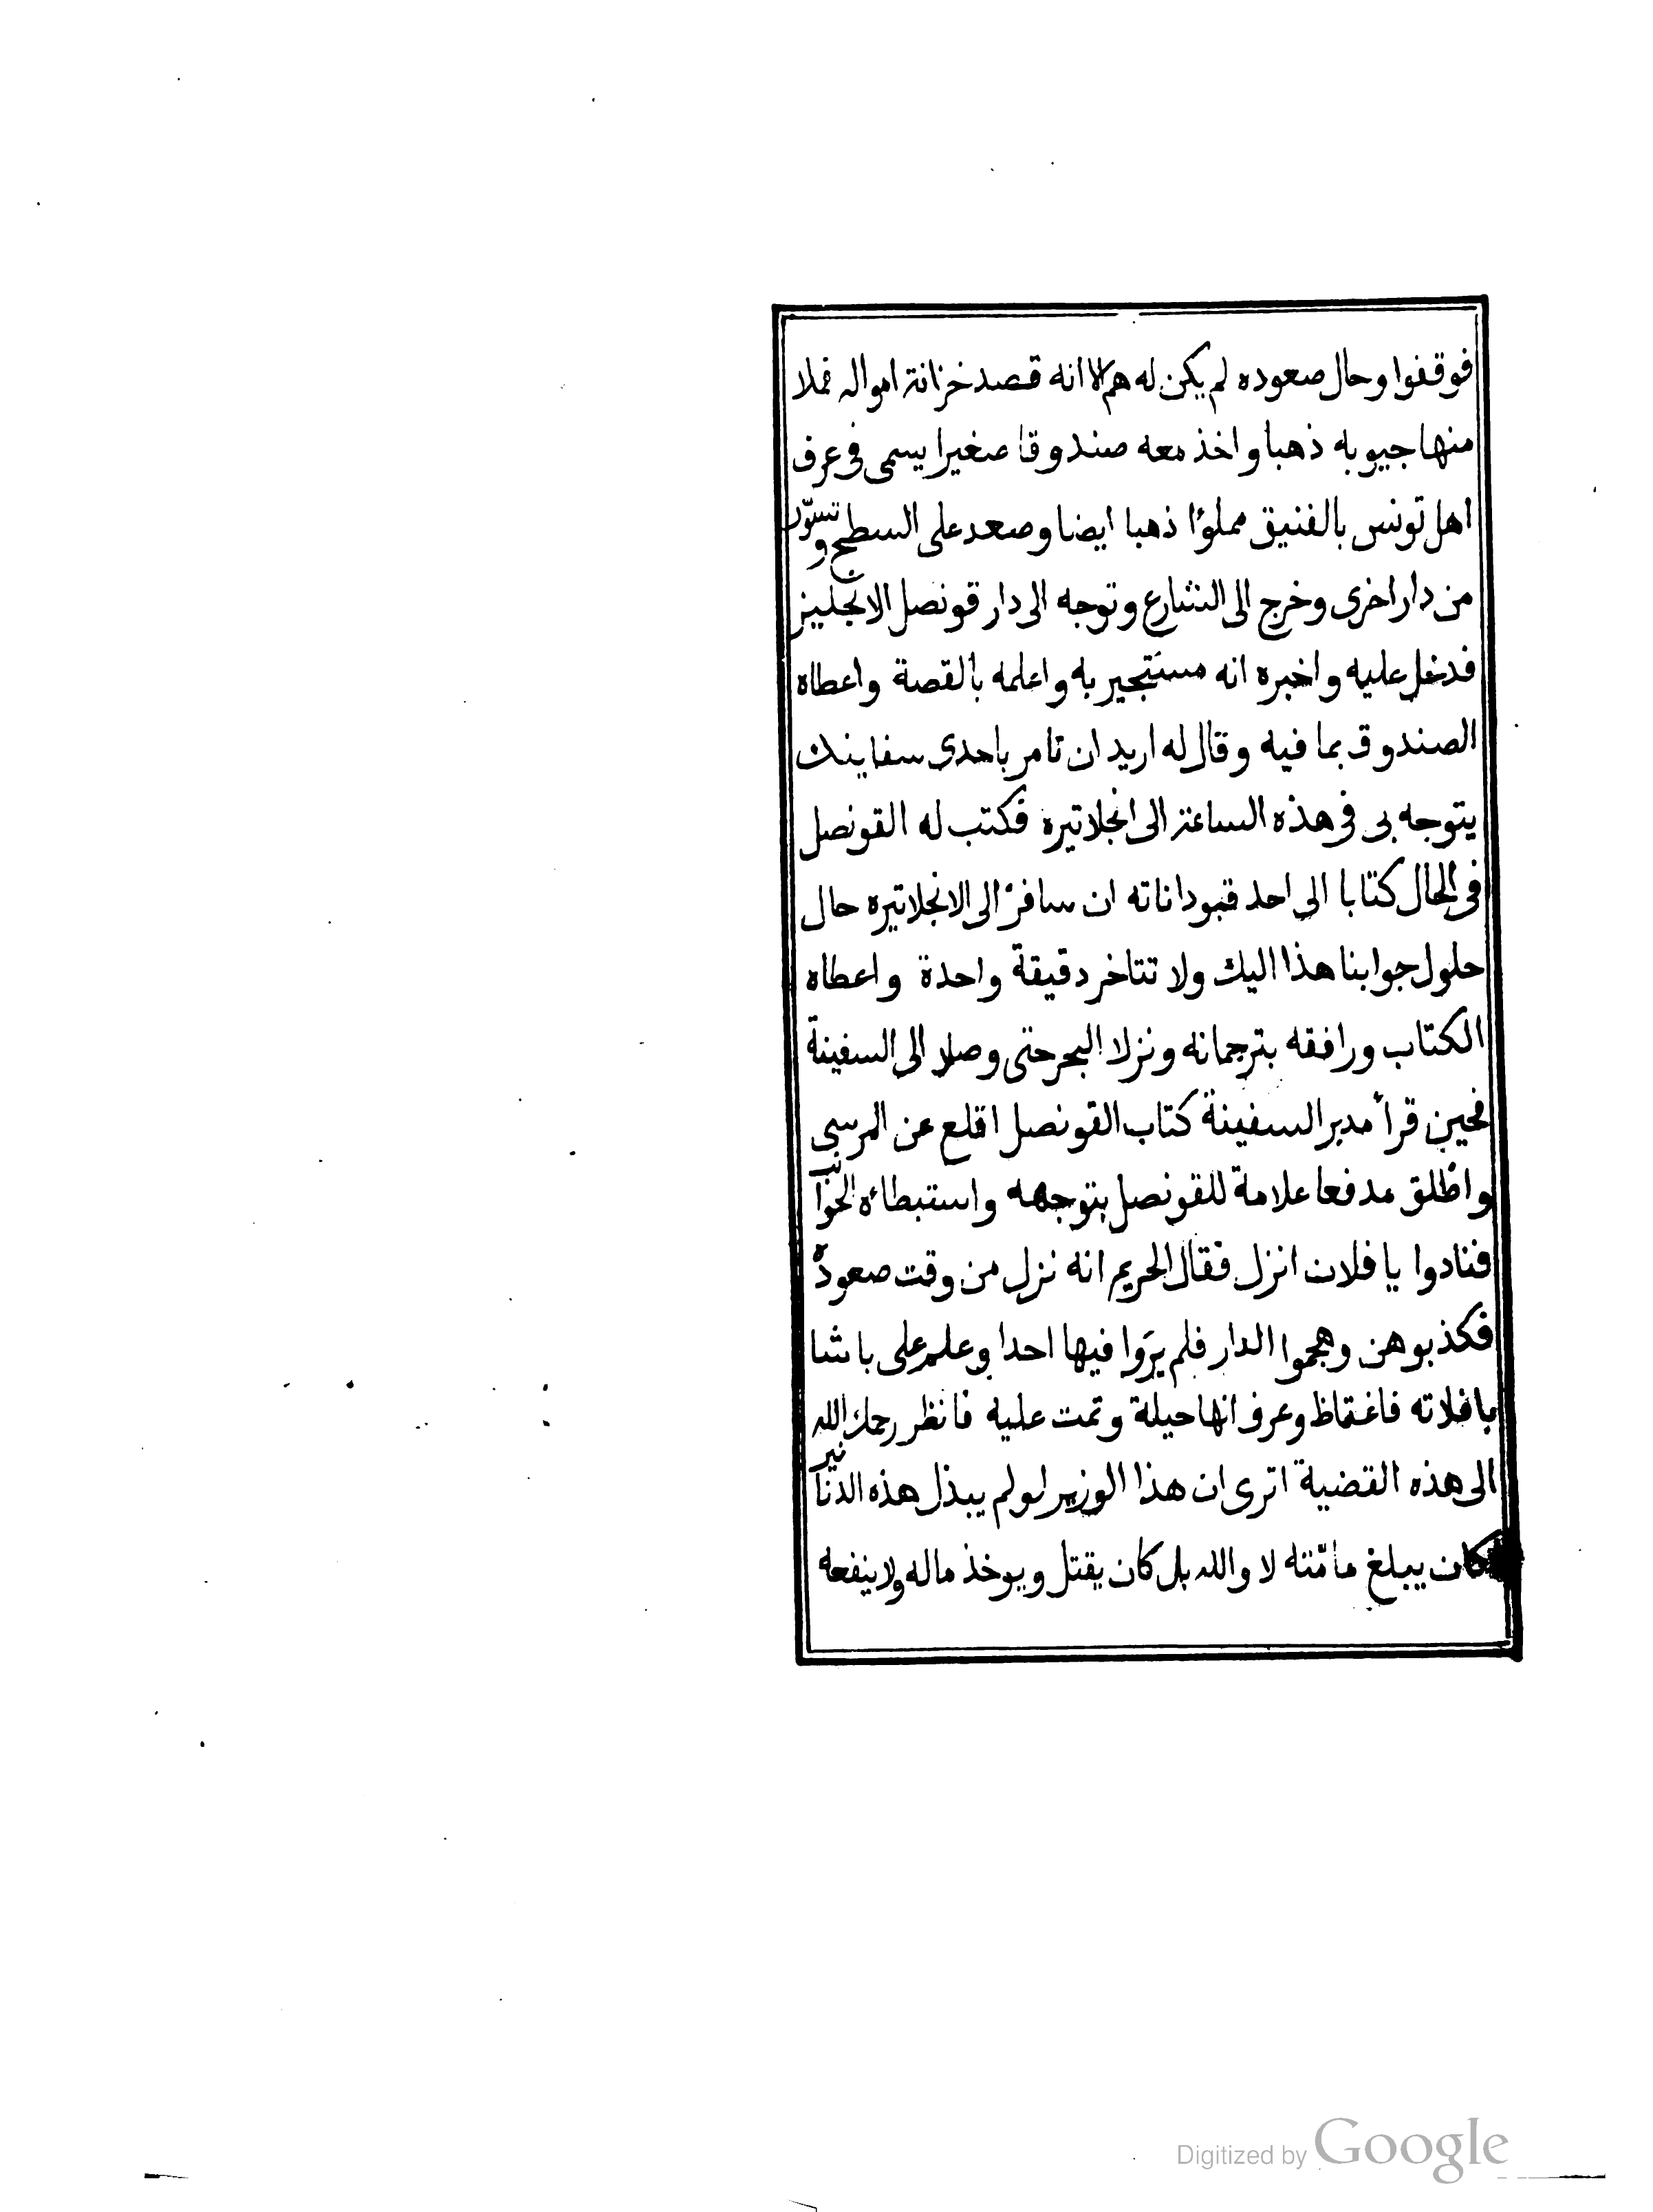 فوقفوا وحال صعوده لم يكن له هم الا انه قصد خزانة امواله فملا
منها جيوبه ذهبا واخذ معه صندوقا صغيرا يسمى فى عرف
اهل تونس بالفنيق مملوًا ذهبا ايضا وصعد على السطح وتسوّر
من دار اخرى وخرج الى الشارع وتوجه الى دار قونصل الانجليز
فدخل عليه واخبره انه مستجير به واعلمه بالقصة واعطاه
الصندوق بما فيه وقال له اريد ان تامر باحدى سفاينك
يتوجه بى فى هذه الساعة الى انجلاتيره فكتب له القونصل
فى الحال كتابا الى احد قبوداناته ان سافر الى الانجلاتيره حال
حلول جوابنا هذا اليك ولا تتاخر دقيقة واحدة واعطاه
الكتاب ورافقه بترجمانه ونزلا البحر حتى وصلا الى السفينة
فحين قرأ مدبر السفينة كتاب القونصل اقلع عن المرسى
واطلق مدفعا علامة للقونصل بتوجهه واستبطاءه الحوانب
فنادوا يا فلان انزل فقال الحريم انه نزل من وقت صعوده
فكذبوهن وهجموا الدار فلم يرَوا فيها احدا وعلم على باشا
بافلاته فاغتاظ وعرف انها حيلة وتمت عليه فانظر رحمك الله
الى هذه القضية اترى ان هذا الوزير لو لم يبذل هذه الدنانير
كان يبلغ مامّنه لا والله بل كان يقتل ويوخذ ماله ولا ينفعه
Digitized by Google